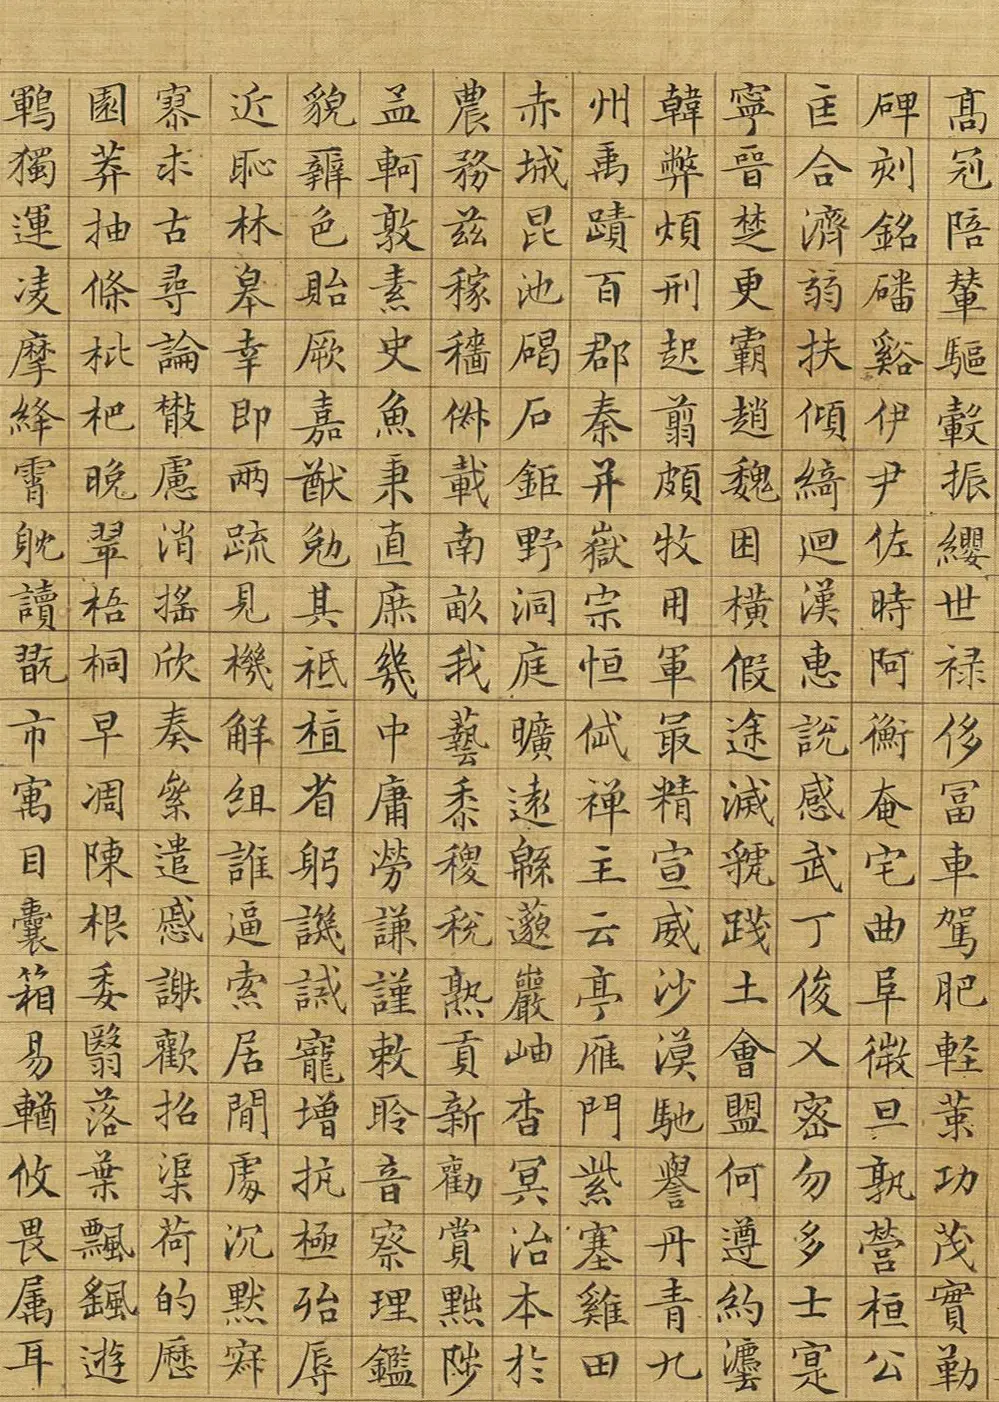 高冠陪輦驅轂振纓世禄侈冨車駕肥軽策功茂實勒
碑刻銘磻谿伊尹佐時阿衡奄宅曲阜微旦孰營桓公
匡合濟弱扶傾綺迴漢惠說感武丁俊乂密勿多士寔
寧晉楚更霸趙魏困橫假途滅虢踐土會盟何遵約灋
韓弊煩刑起翦頗牧用軍最精宣威沙漠馳譽丹青九
州禹蹟百郡秦并嶽宗恒岱禅主云亭雁門紫塞雞田
赤城昆池碣石鉅野洞庭曠遠緜邈巖岫杳冥治本於
農務兹稼穡俶載南畝我藝黍稷稅熟貢新勸賞黜陟
孟軻敦素史魚秉直庶幾中庸勞謙謹敕聆音察理鑑
貌辨色貽厥嘉猷勉其祗植省躬譏誡寵增抗極殆辱
近恥林皋幸即兩疏見機解組誰逼索居閒處沉默寂
寥求古尋論散慮消搖欣奏累遣慼謝歡招渠荷的歷
園莽抽條枇杷晚翠梧桐早凋陳根委翳落葉飄颻遊
鵾獨運凌摩絳霄耽讀翫市寓目囊箱易輶攸畏属耳